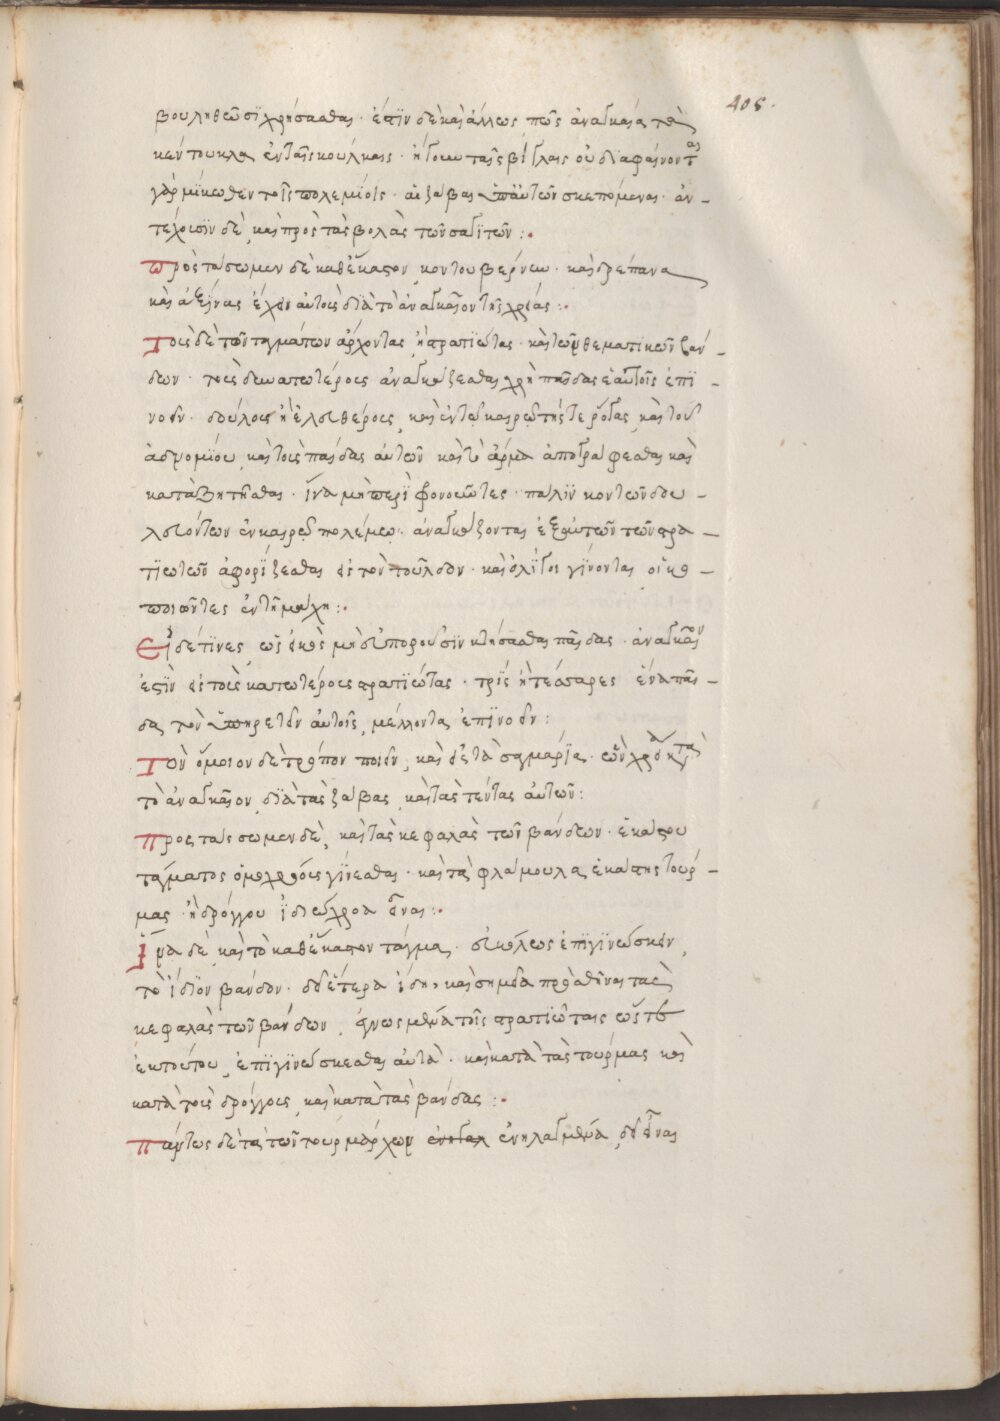 405.
βουληθῶσϊ χρήσασθαι · ἔστϊν δὲ καὶ ἄλλως πῶς ἀναγκαῖα τὰ
κέντουκλα ἐν ταῖς σκούλκαις · ἤγουν ταῖς βίγλαις οὐ διαφαίνονται
γὰρ μήκωθεν τοῖς πολεμίοις · αἱ ζάβαι ὑπ' αὐτῶν σκεπόμεναι · ἀν –
τέχουσϊν δὲ καὶ πρὸς τὰς βολὰς τῶν σαγϊτῶν :·
προστάσωμεν δὲ καθ' ἕκαστον κοντουβέρνιων · καὶ δρέπανα
καὶ ἀξίνας ἔχειν αὐτοὺς διὰ τὸ ἀναγκαῖον τῆς χρείας :·
Τοὺς δὲ τῶν ταγμάτων ἄρχοντας ἢ στρατϊώτας · καὶ τῶν θεματικῶν βάν –
δων · τοὺς δυνατωτέρους ἀναγκάζεσθαι χρὴ παῖδας ἑαυτοῖς ἐπϊ –
νοεῖν · δούλους ἢ ἐλευθέρους καὶ ἐν τῶ καιρῶ τῆς τε ῥόγας καὶ τοῦ
ἀδνομίου καὶ τοὺς παῖδας αὐτῶν καὶ τὸ ἄρμα ἀπογράφεσθαι καὶ
καταζητεῖσθαι · ἵνα μὴ περϊφρονοῦντες · πάλϊν κοντῶν δου –
λευόντων ἐν καιρῶ πολέμου · ἀναγκάζονται ἐξ αὐτῶν τῶν στρα –
τϊωτῶν ἀφορίζεσθαι εἰς τὸν τοῦλδον · καὶ ὀλίγοι γίνονται οἱ κο –
ποιοῦντες ἐν τῆ μάχη :·
Εἰ δέ τϊνες ὡς εἰκὸς μὴ εὐποροῦσϊν κτήσασθαι παῖδας · ἀναγκαῖον
ἐστὶν εἰς τοὺς κατωτέρους στρατϊώτας · τρεῖς ἢ τέσσαρες ἕνα παῖ –
δα τὸν ὑπηρετεῖν αὐτοῖς μέλλοντα ἐπϊνοεῖν :
Τὸν ὅμοιον δὲ τρόπον ποιεῖν καὶ εἰς τὰ σαγμάρϊα · ὧν χρεία κατὰ
τὸ ἀναγκαῖον διὰ τὰς ζάβας καὶ τὰς τέντας αὐτῶν :
Προστάσσωμεν δὲ καὶ τὰς κεφαλὰς τῶν βάνδων · ἑκάστου
τάγματος ὁμοχρόους γίνεσθαι · καὶ τὰ φλάμουλα ἑκάστης τούρ –
μας ἢ δρόγγου ἰδιώχροα εἶναι :·
Ἵνα δὲ καὶ τὸ καθ' ἕκαστον τάγμα · εὐκόλως ἐπϊγϊνώσκειν
τὸ ἴδϊον βάνδον · δεῖ ἕτερα εἴδη καὶ σημεῖα προσθεῖναι ταῖς
κεφαλαῖς τῶν βάνδων ἐγνωσμένα τοῖς στρατϊώταις ὥστε
ἐκ τούτου ἐπϊγϊνώσκεσθαι αὐτὰ · καὶ κατὰ τὰς τούρμας καὶ
κατὰ τοὺς δρόγγους καὶ κατὰ τὰς βάνδας :·
Πάντως δὲ τὰ τῶν τουρμάρχων ἐνηλαγμένα δεῖ εἶναι